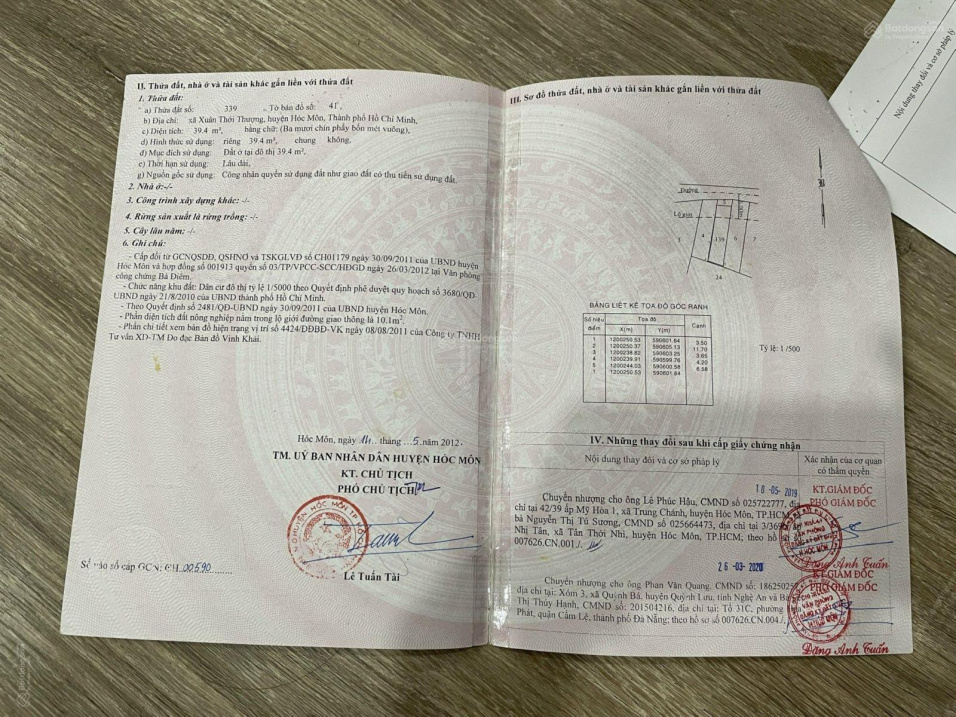 II. Thửa đất, nhà ở và tài sản khác gắn liền với thửa đất
1. Thửa đất:
a) Thửa đất số: 339 Tờ bản đồ số: 41
b) Địa chỉ: xã Xuân Thới Thượng, huyện Hóc Môn, Thành phố Hồ Chí Minh,
c) Diện tích: 39.4 m², bằng chữ: (Ba mươi chín phẩy bốn mét vuông),
d) Hình thức sử dụng: riêng 39.4 m², chung không,
đ) Mục đích sử dụng: Đất ở tại đô thị 39.4 m²,
e) Thời hạn sử dụng: Lâu dài,
g) Nguồn gốc sử dụng: Công nhận quyền sử dụng đất như giao đất có thu tiền sử dụng đất.
2. Nhà ở:-/-
3. Công trình xây dựng khác: -/-
4. Rừng sản xuất là rừng trồng: -/-
5. Cây lâu năm: -/-
6. Ghi chú:
- Cấp đổi từ GCNQSDĐ, QSHNƠ và TSKGLVĐ số CH01179 ngày 30/09/2011 của UBND huyện
Hóc Môn và hợp đồng số 001913 quyển số 03/TP/VPCC-SCC/HĐGD ngày 26/03/2012 tại Văn phòng
công chứng Bà Điểm.
- Chức năng khu đất: Dân cư đô thị tỷ lệ 1/5000 theo Quyết định phê duyệt quy hoạch số 3680/QĐ-
UBND ngày 21/8/2010 của UBND thành phố Hồ Chí Minh.
- Theo Quyết định 2481/QĐ-UBND ngày 30/09/2011 của UBND huyện Hóc Môn.
- Phần diện tích đất nông nghiệp nằm trong lộ giới đường giao thông là 10.1m².
- Phần chi tiết xem bản đồ hiện trạng vị trí số 4424/ĐĐBĐ-VK ngày 08/08/2011 của Công ty TNHH
Tư vấn XD-TM Đo đạc Bản đồ Vinh Khải.
Hóc Môn, ngày 14 tháng 5 năm 2012
TM. UỶ BAN NHÂN DÂN HUYỆN HÓC MÔN
KT. CHỦ TỊCH
PHÓ CHỦ TỊCH
Lê Tuấn Tài
Số vào sổ cấp GCN: CH 00590
III. Sơ đồ thửa đất, nhà ở và tài sản khác gắn liền với thửa đất
Đường
Lộ giới
4 339 6 7
24
BẢNG LIỆT KÊ TỌA ĐỘ GÓC RANH
Số hiệu điểm Tọa độ Cạnh
X(m) Y(m)
1 1200250.53 590601.64
3.50
2 1200250.37 590605.13
11.70
3 1200238.82 590603.25
3.65
4 1200239.91 590599.76
4.20
5 1200244.03 590600.58
6.58
1 1200250.53 590601.64
Tỷ lệ: 1 /500
IV. Những thay đổi sau khi cấp giấy chứng nhận
Nội dung thay đổi và cơ sở pháp lý
Xác nhận của cơ quan
có thẩm quyền
16-05-2019
KT.GIÁM ĐỐC
PHÓ GIÁM ĐỐC
Chuyển nhượng cho ông Lê Phúc Hậu, CMND số 025722777, địa
chỉ tại 42/39 ấp Mỹ Hòa 1, xã Trung Chánh, huyện Hóc Môn, TP.HCM
bà Nguyễn Thị Tú Sương, CMND số 025664473, địa chỉ tại
Nhị Tân, xã Tân Thới Nhì, huyện Hóc Môn, TP.HCM; theo hồ sơ
007626.CN.001./.
Đặng Anh Tuấn
26-03-2020
KT.GIÁM ĐỐC
PHÓ GIÁM ĐỐC
Chuyển nhượng cho ông Phan Văn Quang, CMND số:
địa chỉ tại: Xóm 3, xã Quỳnh Bá, huyện Quỳnh Lưu, tỉnh Nghệ An và Bà
Thị Thúy Hạnh, CMND số: 201504216, địa chỉ tại: Tổ 31C, phường
Phát, quận Cẩm Lệ, thành phố Đà Nẵng; theo hồ sơ số 007626.CN.004./.
Đặng Anh Tuấn
Nội dung thay đổi và cơ sở pháp lý
Batdongsan